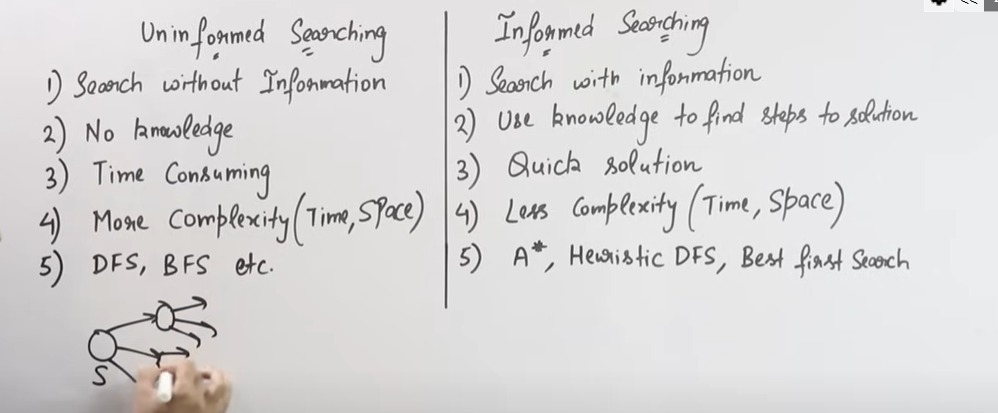 Uninformed Searching
1) Search without Information
2) No knowledge
3) Time Consuming
4) More Complexity (Time, Space)
5) DFS, BFS etc.
S
Informed Searching
1) Search with information
2) Use knowledge to find steps to solution
3) Quick solution
4) Less Complexity (Time, Space)
5) A*, Heuristic DFS, Best first Search